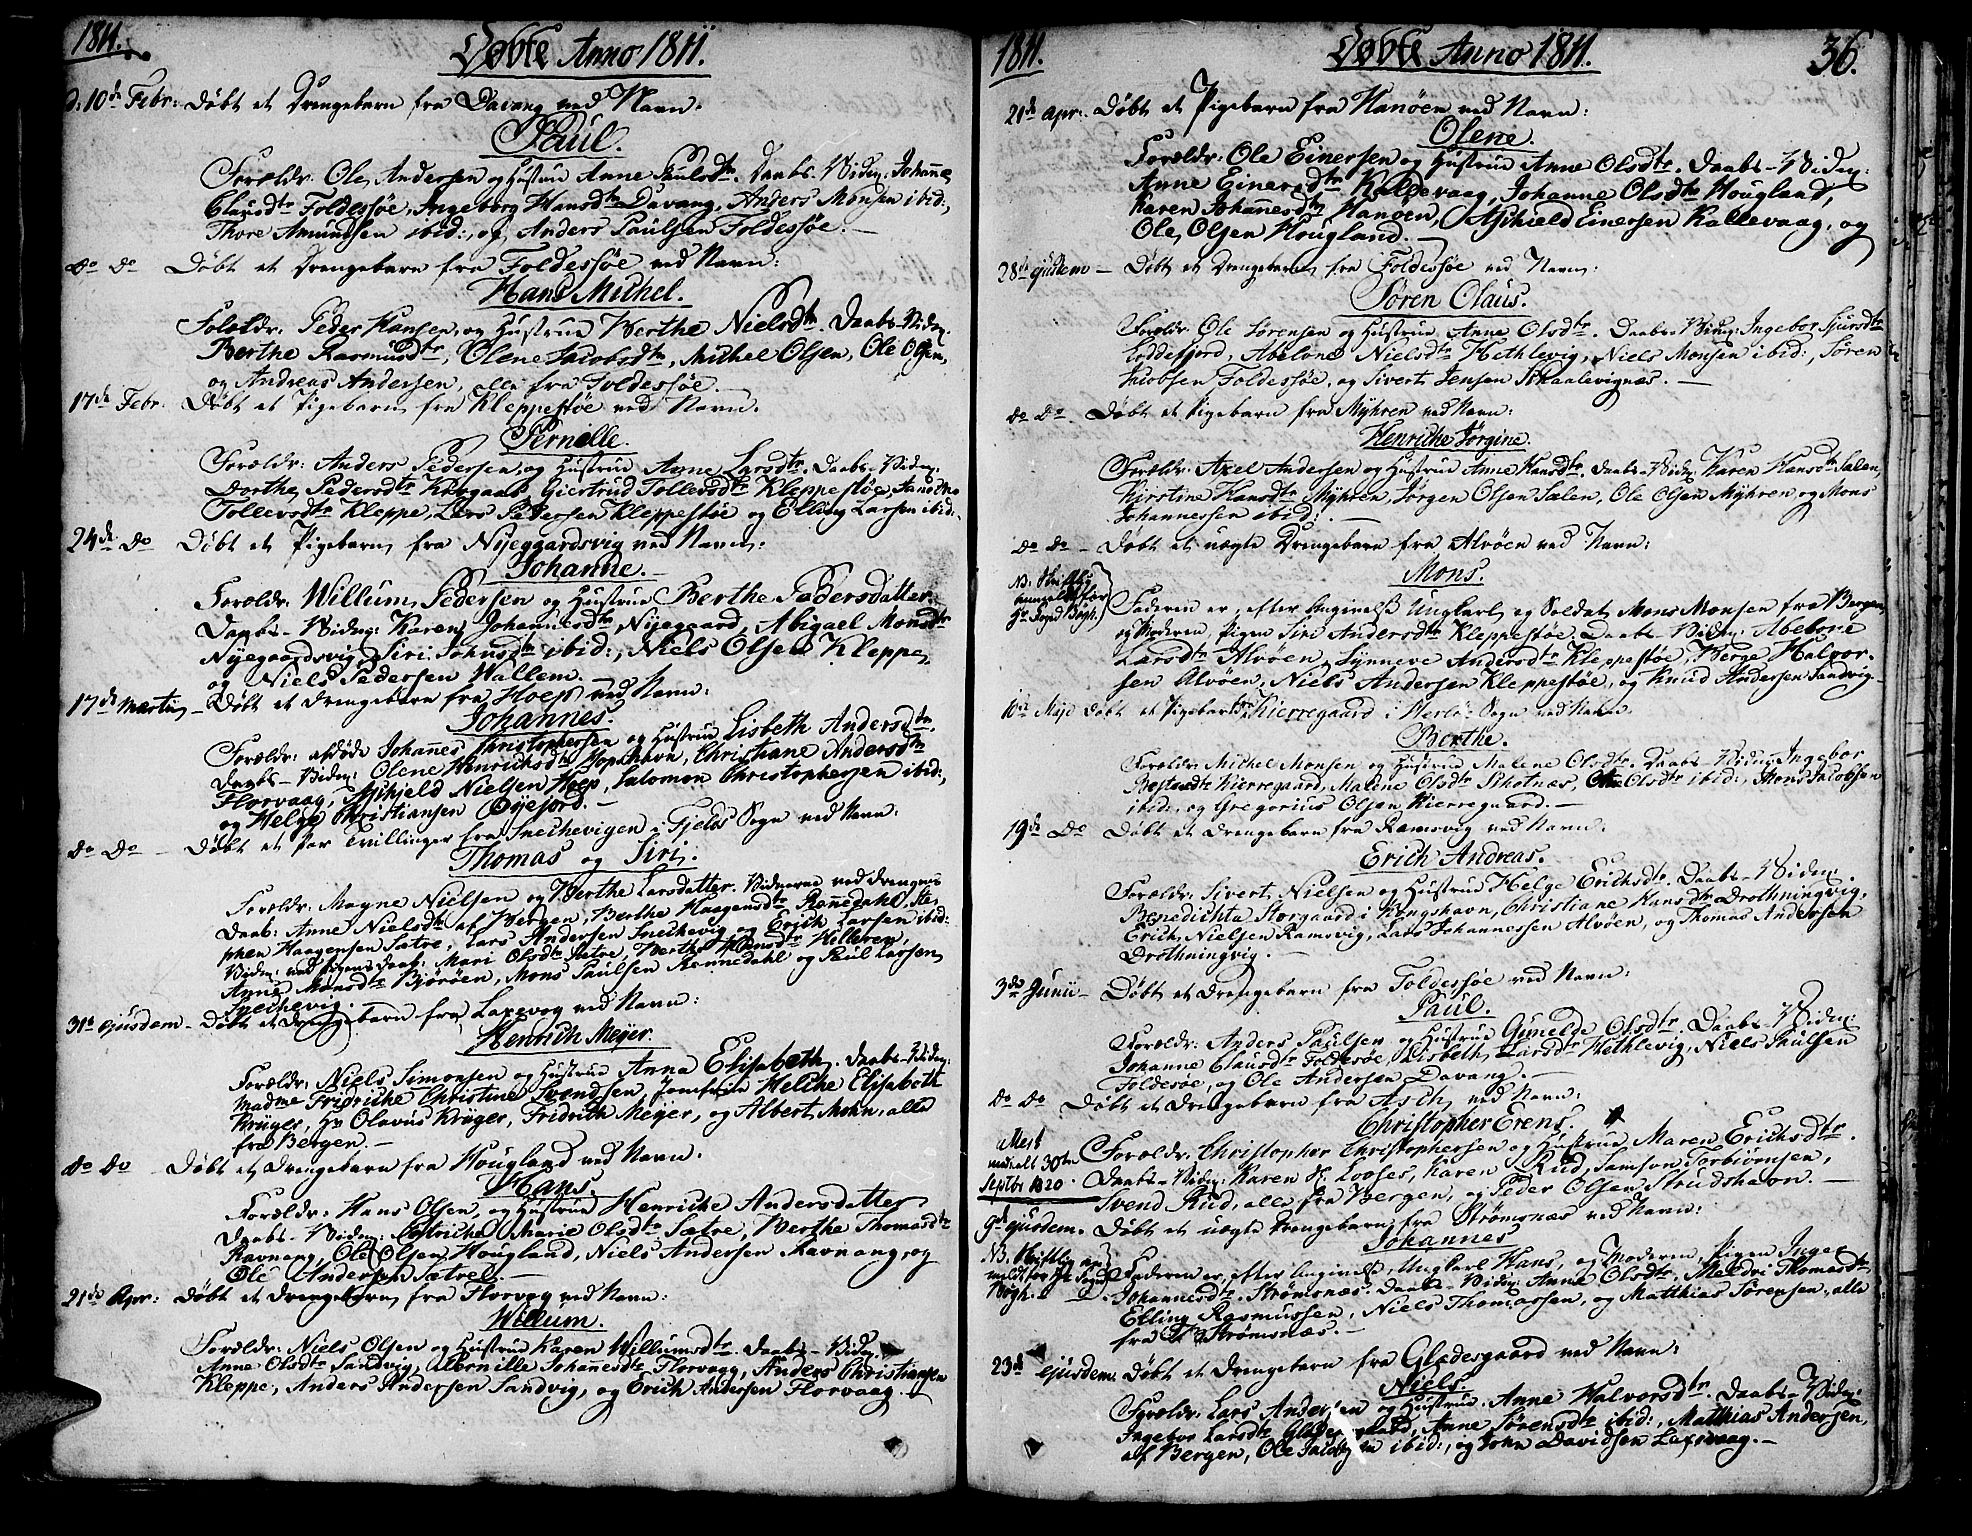 1811.
Døbte Anno 1811.
d: 10de Febr: Døbt et Drengebarn fra Davang ved Navn:
Paul.
Forældr: Ole Andersen og Hustrue Anne Paulsdtr. Daabs-Vidn: Johanne
Clausdtr Foldessøe, Ingeborg Hansdtr Davang, Anders Monsen ibid:,
Thore Amundsen ibid:, og Anders Paulsen Foldessøe.-
do do Døbt et Drengebarn fra Foldessøe ved Navn:
Hans Michel.
Forældr: Peder Hansen, og Hustrue Berthe Nielsdtr. Daabs-Vidn:
Berthe Rasmusdtr, Olene Jacobsdtr, Michel Olsen, Ole Olsen,
og Andreas Andersen, alle fra Foldessøe.-
17de Febr. Døbt et Pigebarn fra Kleppestøe ved Navn.
Pernelle.
Forældr: Anders Pedersen, og Hustrue Anne Larsdtr. Daabs-Vidn:
Dorthe Pedersdtr Krogaas, Giertrud Tollevsdtr Kleppestøe,
Tollevsdtr Kleppe, Lars Pedersen Kleppestøe og Elling Larsen ibid:
24de do Døbt et Pigebarn fra Nyegaardsvig ved Navn:
Johanne.-
Forældr: Willum Pedersen og Hustrue Berthe Pedersdatter.
Daabs-Vidn: Karen Johannesdtr Nyegaard, Abigael Monsdtr
Nyegaardsvig, Siri Johnsdtr ibid:, Niels Olsen Kleppe,
og Niels Pedersen Wallem.-
17de Martii - Døbt et Drengebarn fra Hoep ved Navn:
Johannes.
Forældr: afdøde Johannes Christophersen og Hustrue Lisbeth Andersdtr.
Daabs-Vidn: Olene Henrichsdtr Kopehavn, Christiane Andersdtr
Florvaag, Askield Nielsen Hoep, Salomon Christophersen ibid:,
og Helge Christiansen Øyejord.-
do do - Døbt et Par Tvillinger fra Snechevigen i Fjelds Sogn ved Navn:
Thomas og Siri.
Forældr: Magne Nielsen og Berthe Larsdatter. Vidnerne ved Drengens
Daab: Anne Nielsdtr af Bergen, Berthe Haagensdtr Ramedahl, Ste-
phen Haagensen Sætre, Lars Andersen Snechevig og Erich Larsen ibid:
Vidn: ved Pigens Daab: Mari Olsdtr Sætre, Berthe Monsdtr Hilleren,
Anne Monsdtr Bjørøen, Mons Paulsen Ramedahl og Paul Larsen
Snechevig.
31te ejusdem - Døbt et Drengebarn fra Laxevog ved Navn:
Henrich Meyer.
Forældr: Niels Simonsen og Hustrue Anna Elisabeth. Daabs-Vidn:
Madme Fridriche Christine Svendsen, Jomfrue Helche Elisabeth
Krüger, Hr Olavus Krüger, Fridrich Meyer, og Albert Mohn, alle
fra Bergen.-
do do - Døbt et Drengebarn fra Hougland ved Navn:
Hans.
Forældr: Hans Olsen, og Hustrue Henriche Andersdatter
Daabs-Vidn: Marie Olsdtr Sætre, Berthe Thomasdtr
Ravnang, Ole Olsen Hougland, Niels Andersen Ravnang, og
Ole Andersen Sætre.-
21de Apr: Døbt et Drengebarn fra Florvog ved Navn:
Willum.
Forældr: Niels Olsen og Hustrue Karen Willumsdtr. Daabs-Vidn:
Anne Olsdtr Sandvig, Pernille Johannesdtr Florvaag, Anders Christiansen
Kleppe, Anders Andersen Sandvig, og Erich Andersen Florvaag.-
1811.
Døbte Anno 1811.
36.
21de Apr: Døbt et Pigebarn fra Hanøen ved Navn:
Olene.
Forældr: Ole Einersen og Hustrue Anne Olsdtr. Daabs-Vidn:
Anne Einersdtr Kallevaag, Johanne Olsdtr Hougland,
Karen Johannesdtr Hanøen, Askield Einersen Kallevaag, og
Ole Olsen Hougland.-
28de ejusdem - Døbt et Drengebarn fra Foldessøe ved Navn:
Søren Claus.
Forældr: Ole Sørensen og Hustrue Anne Olsdtr. Daabs-Vidn: Ingebor Sjursdtr
Loddefjord, Abelone Nielsdtr Hethlevig, Niels Monsen ibid:, Søren
Jacobsen Foldessøe, og Sivert Jensen Skaalevignæs.-
do do. Døbt et Pigebarn fra Myhren ved Navn:
Henriche Jørgine.
Forældr: Axel Andersen og Hustrue Anne Hansdtr. Daabs-Vidn: Karen Hansdtr Salen,
Kirstine Hansdtr Myhren, Jørgen Olsen Salen, Ole Olsen Myhren, og Mons
Johannessen ibid:.-
do do - Døbt et uægte Drengebarn fra Alvøen ved Navn:
Mons.
NB: Skriftlig
anmeldt for
Hr Sogn Bøgh.
Faderen er, efter Angivelse Ungkarl og Soldat Mons Monsen fra Bergen,
og Moderen, Pigen Siri Andersdtr Kleppestøe. Daabs-Vidn: Abelone
Larsdtr Alvøen, Synneve Andersdtr Kleppestøe, Berge Halvor-
sen Alvøen, Niels Andersen Kleppestøe, og Knud Andersen Sandvig.-
Maji Døbt et Pigebarn fra Kierregaard i Herlø Sogn ved Navn
Berthe.
Forældr: Michel Monsen og Hustrue Malene Olsdtr. Daabs-Vidn: Ingebor
Kierregaard, Malene Olsdtr Skotnæs, Olsdtr ibid:, Mons Jacobsen
ibid:, og Gregorius Olsen Kierregaard.-
19de do Døbt et Drengebarn fra Ramsvig ved Navn:
Erich Andreas.
Forældr: Sivert Nielsen og Hustrue Helge Erichsdtr. Daabs-Vidn:
Benedichta Storgaard i Kongshavn, Christiane Hansdtr Drothningvig,
Erich Nielsen Ramsvig, Lars Johannessen Alvøen, og Thomas Andersen
Drothningvig.-
3de Junii - Døbt et Drengebarn fra Foldessøe ved Navn:
Paul.
Forældr: Anders Paulsen og Hustrue Gunelde Olsdtr. Daabs-Vidn:
Johanne Clausdtr Foldesøe, Lisbeth Larsdtr Hethlevig, Niels Paulsen
Foldesøe, og Ole Andersen Davang.-
do do Døbt et Drengebarn fra Asch ved Navn:
Christopher Erens.
Attest
meddelt 30te
Septbr 1820.
Forældr: Christopher Christophersen og Hustrue Maren Erichsdtr.
Daabs-Vidn: Karen Looses, Karen Rud, Samson Torbiørnsen,
Svend Rud, alle fra Bergen, og Peder Olsen Strudshavn.-
9de ejusdem. Døbt et uægte Drengebarn fra Strømsnæs ved Navn:
Johannes
NB. Skriftlig an-
meldt for Hr Sogn
Bøgh.
Faderen er, efter Angivelse, Ungkarl Hans, og Moderen, Pigen Inger
Johannesdtr Strømsnæs. Daabs-Vidn: Anne Olsdtr, Thomasdtr
Elling Rasmussen, Niels Thomassen, og Matthias Sørensen, alle
fra Strømsnæs.-
23de ejusdem. Døbt et Drengebarn fra Gladesgaard ved Navn:
Niels
Forældr: Lars Andersen og Hustrue Anne Halvorsdtr. Daabs-Vidn:
Ingebor Larsdtr Gladesgaard, Anne Sørensdtr ibid:, Matthias Andersen,
af Bergen, Ole ibid:, og John Davidsen Laxevaag.-